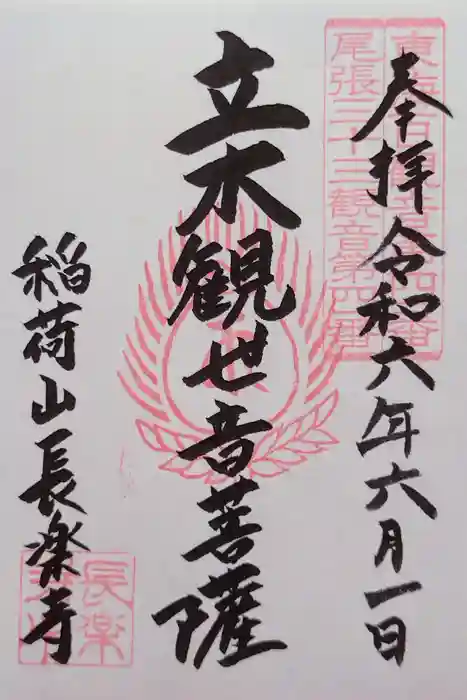 奉拝令和六年六月一日
東海百観音第四番
尾張三十三観音第四番
立木観世音菩薩
稲荷山長楽寺
長楽